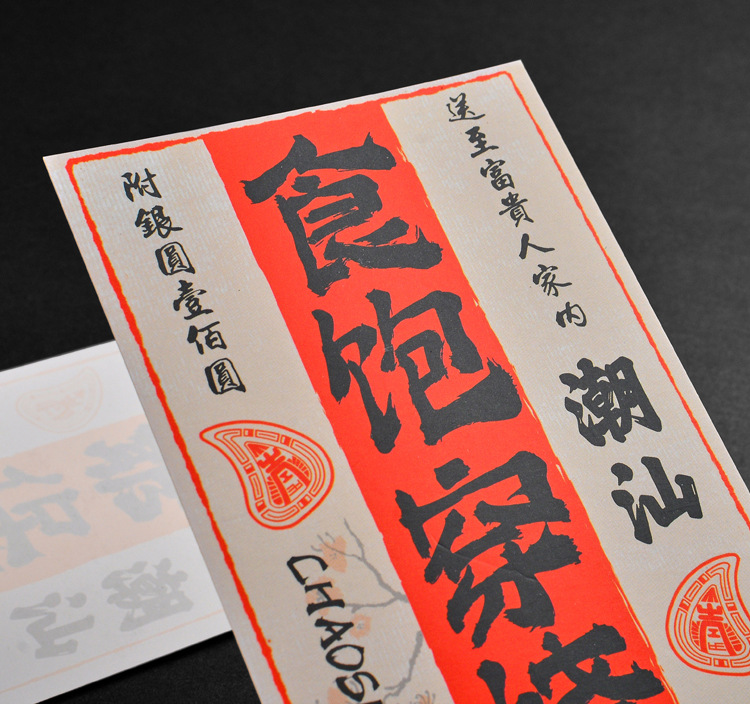 送至富貴人家内
潮汕
食饱穿
附銀圓壹佰圓
CHAOS